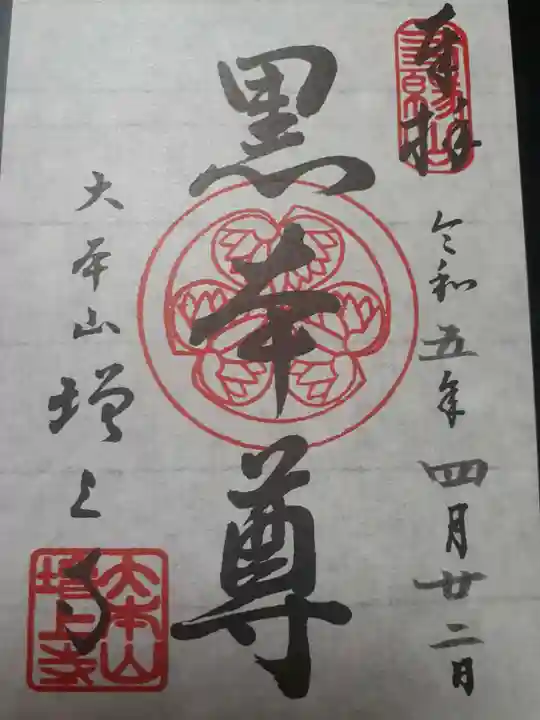 奉拝
令和五年四月廿二日
黒本尊
大本山増上寺
大本山
増上寺